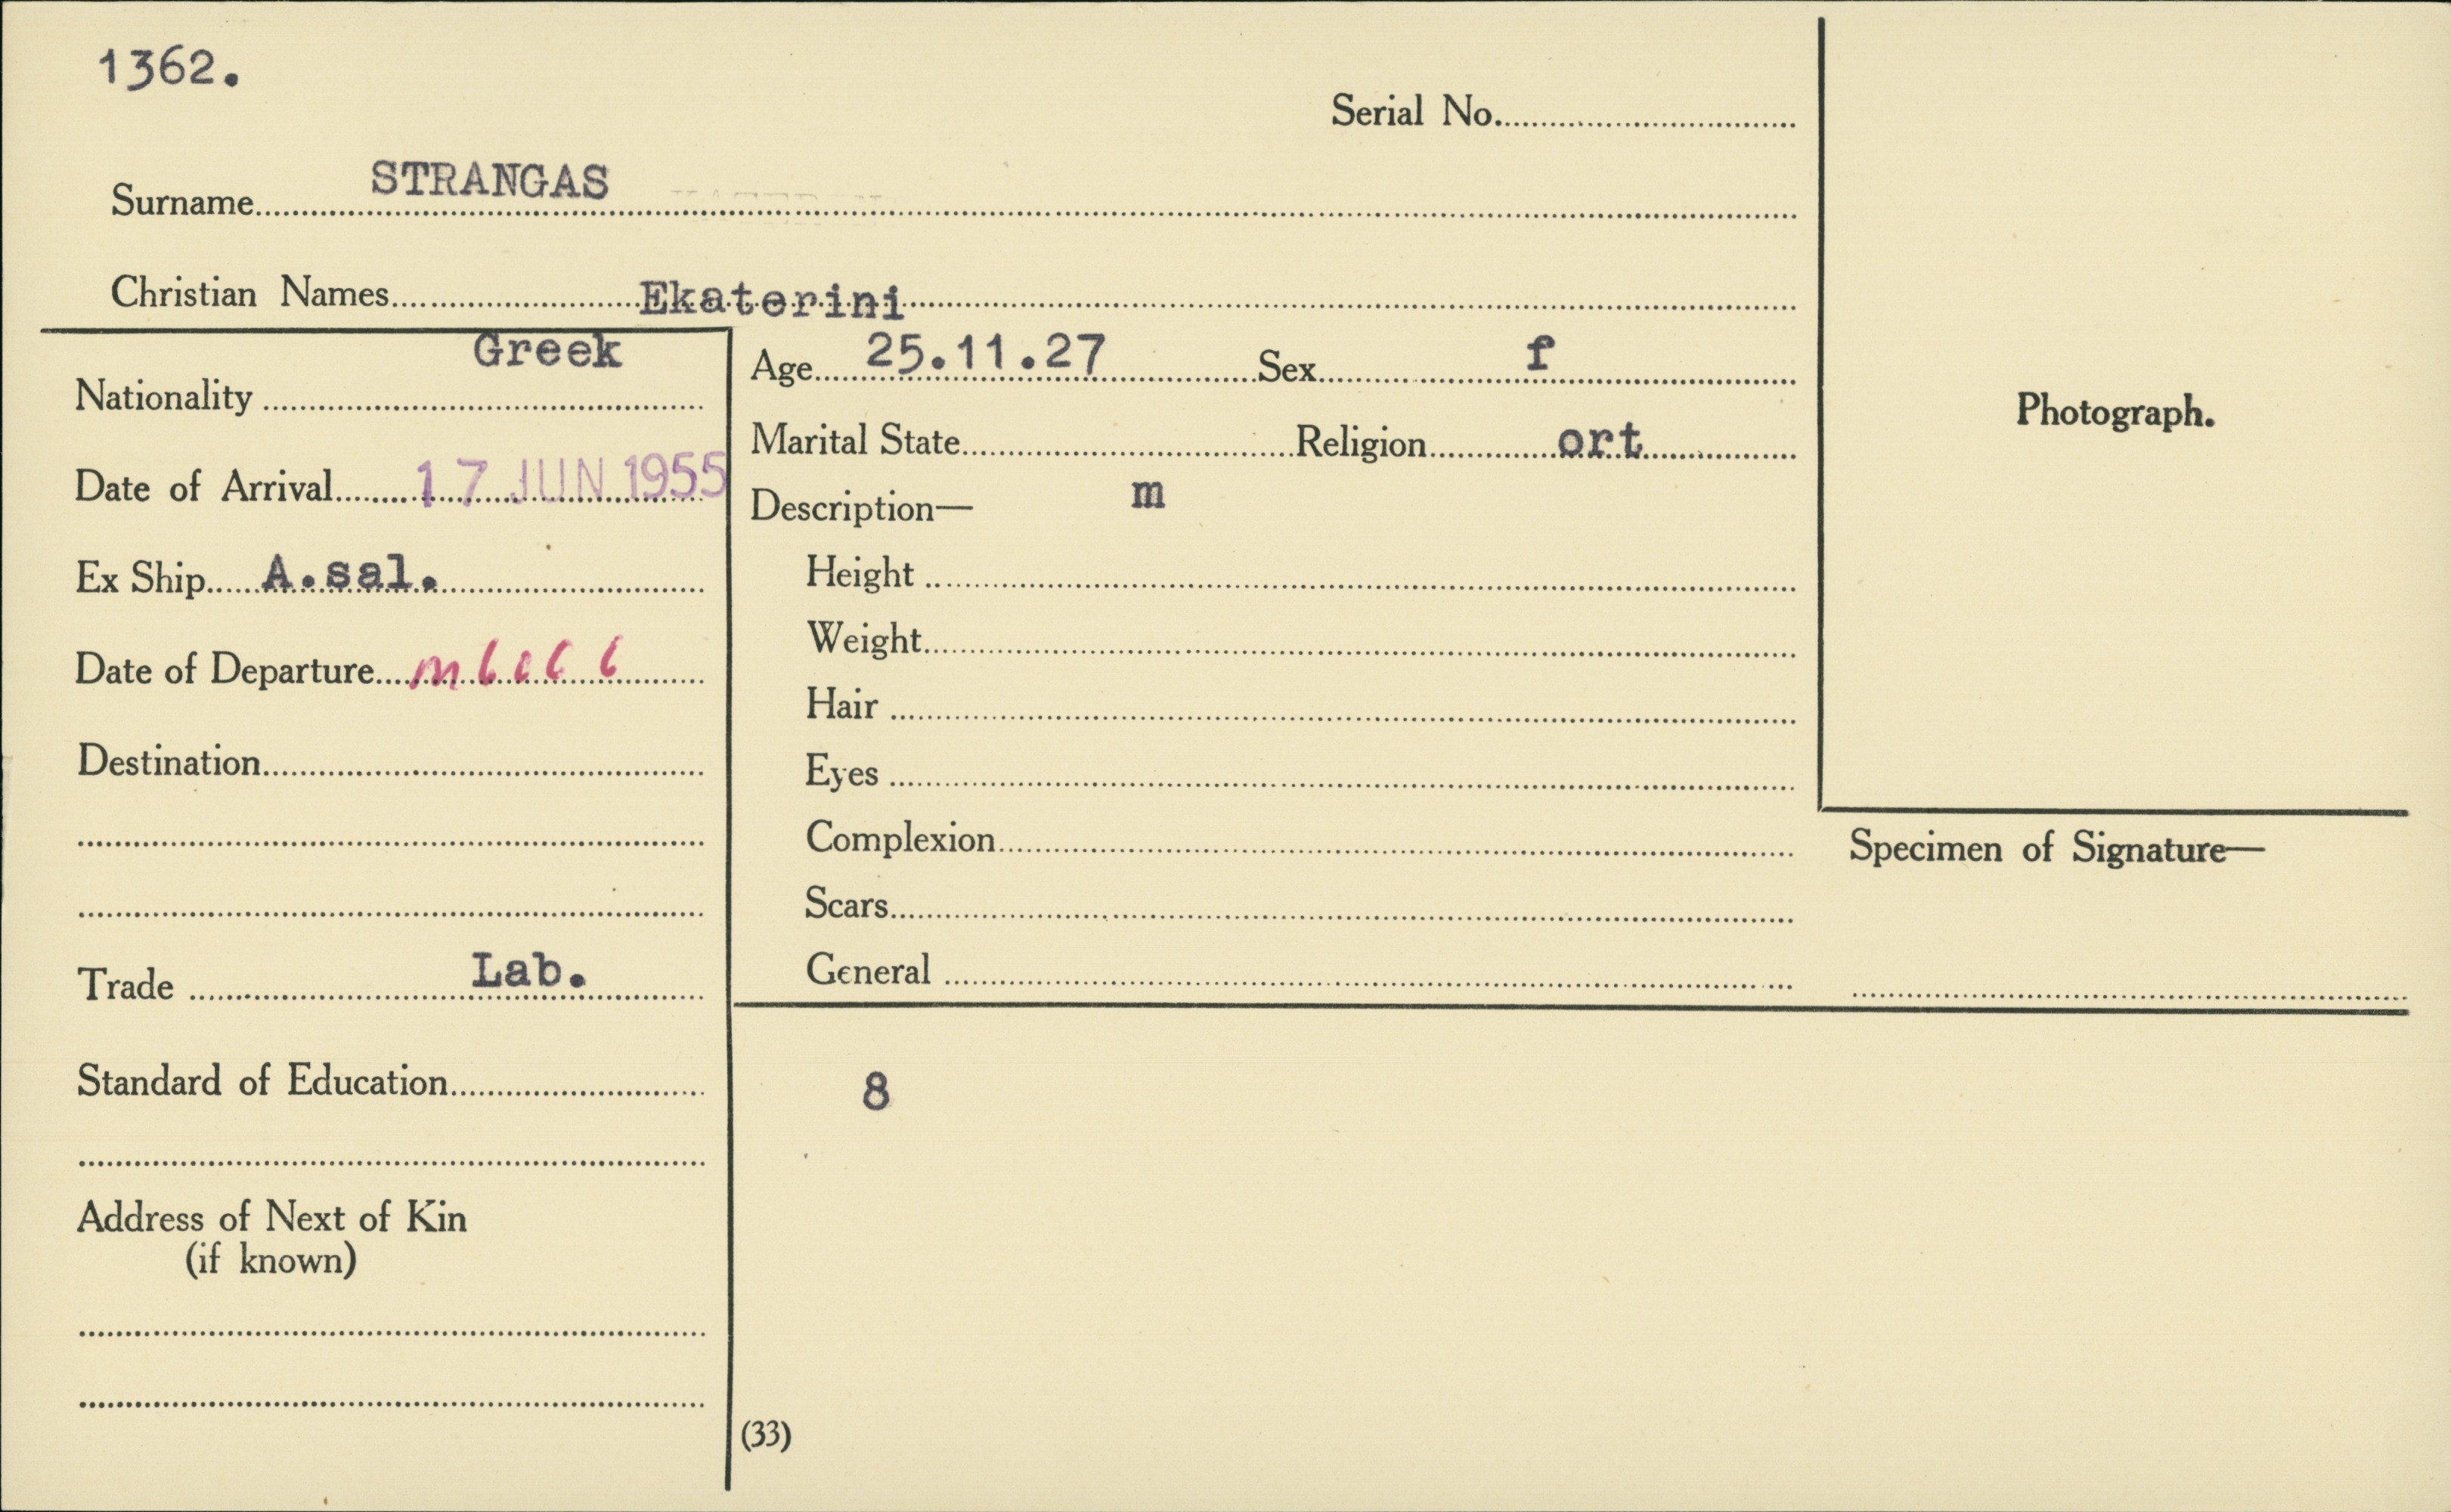 1362.
Serial No.
Surname STRANGAS
Christian Names Ekaterini
Nationality Greek
Date of Arrival 17 JUN 1955
Ex Ship A.sal.
Date of Departure
Destination
Trade Lab.
Standard of Education
Address of Next of Kin
(if known)
Age 25.11.27 Sex f
Marital State Religion ort
Description— m
Height
Weight
Hair
Eyes
Complexion
Scars
General
8
(33)
Photograph.
Specimen of Signature—